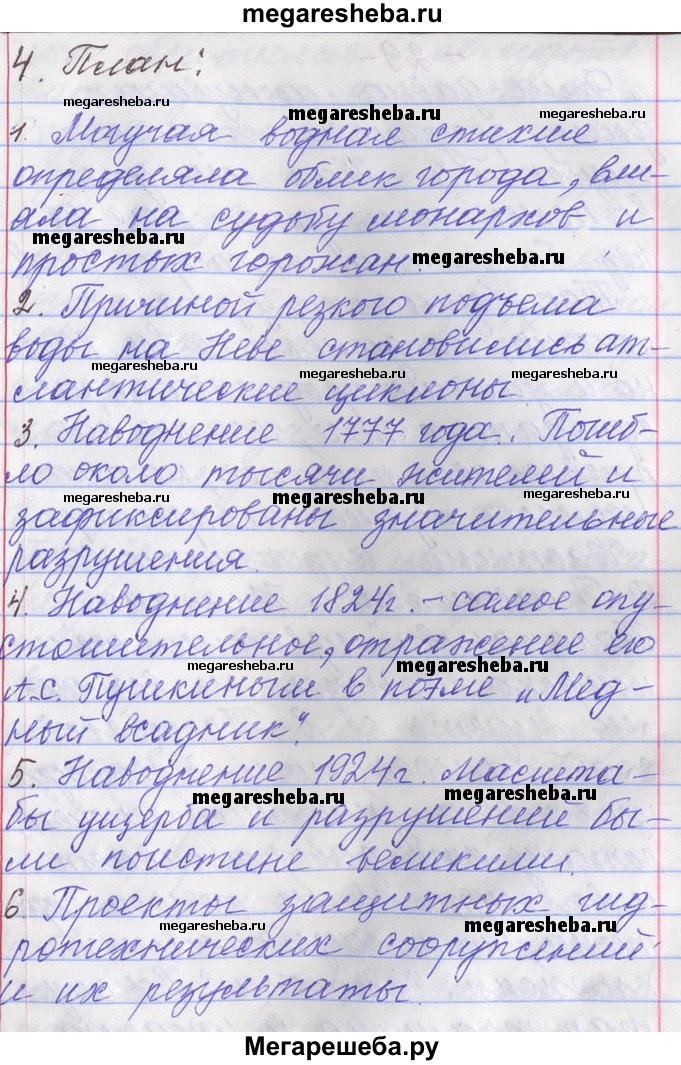 megaresheba.ru
4. План:
megaresheba.ru megaresheba.ru megaresheba.ru
1. Могучая водная стихия
определяла облик города, вли-
яла на судьбу монархов и
megaresheba.ru megaresheba.ru megaresheba.ru
простых горожан.
2. Причиной резкого подъема
воды на Неве становились ат-
megaresheba.ru megaresheba.ru megaresheba.ru
лантические циклоны
3. Наводнение 1777 года. Погиб-
ло около тысячи жителей и
megaresheba.ru megaresheba.ru megaresheba.ru
зафиксированы значительные
разрушения.
4. Наводнение 1824г. - самое опу-
стошительное, отражение его
megaresheba.ru megaresheba.ru
А.С. Пушкиным в поэме „Мед-
ный всадник".
5. Наводнение 1924г. Масшта-
megaresheba.ru megaresheba.ru
бы ущерба и разрушений бы-
ли поистине великими.
6 Проекты защитных гид-
megaresheba.ru megaresheba.ru
ротехнических сооружений
и их результаты.
Мегарешеба.ру